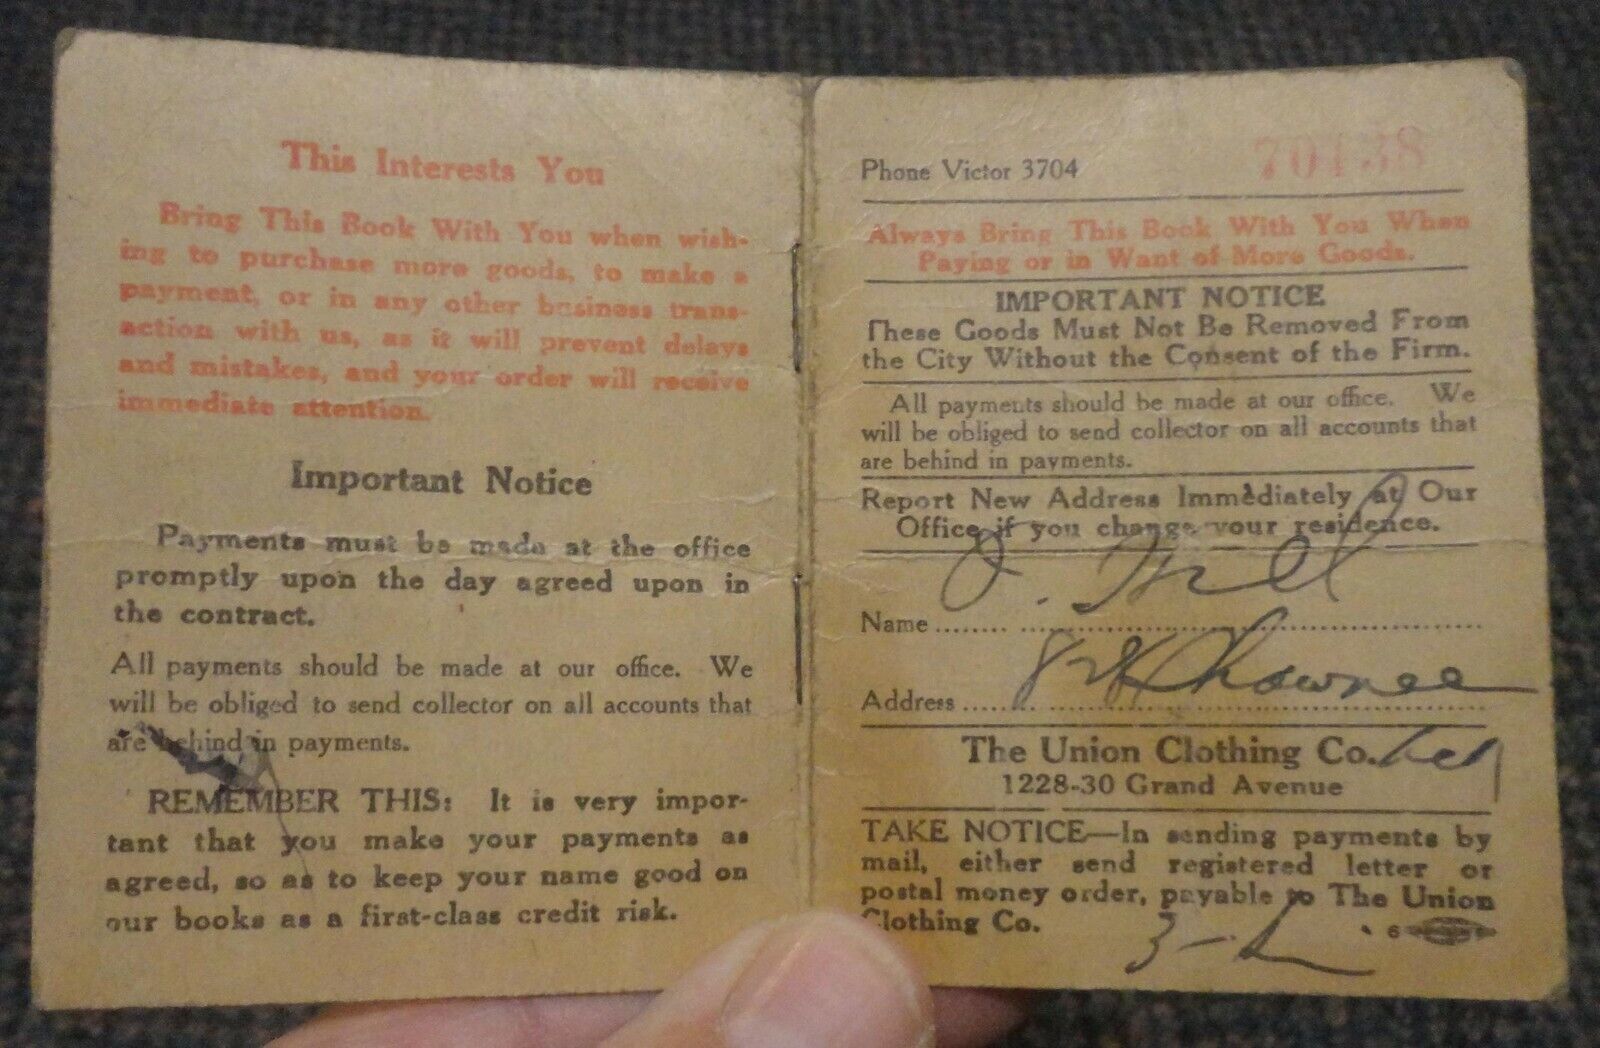 This Interests You
Bring This Book With You when wish-
ing to purchase more goods, to make a
payment, or in any other business trans-
action with us, as it will prevent delays
and mistakes, and your order will receive
immediate attention.
Important Notice
Payments must be made at the office
promptly upon the day agreed upon in
the contract.
All payments should be made at our office. We
will be obliged to send collector on all accounts that
are behind in payments.
REMEMBER THIS: It is very impor-
tant that you make your payments as
agreed, so as to keep your name good on
our books as a first-class credit risk.
Phone Victor 3704
70138
Always Bring This Book With You When
Paying or in Want of More Goods.
IMPORTANT NOTICE
These Goods Must Not Be Removed From
the City Without the Consent of the Firm.
All payments should be made at our office. We
will be obliged to send collector on all accounts that
are behind in payments.
Report New Address Immediately at Our
Office if you change your residence.
Name
Address Shawnee
The Union Clothing Co.
1228-30 Grand Avenue
TAKE NOTICE—In sending payments by
mail, either send registered letter or
postal money order, payable to The Union
Clothing Co.
6